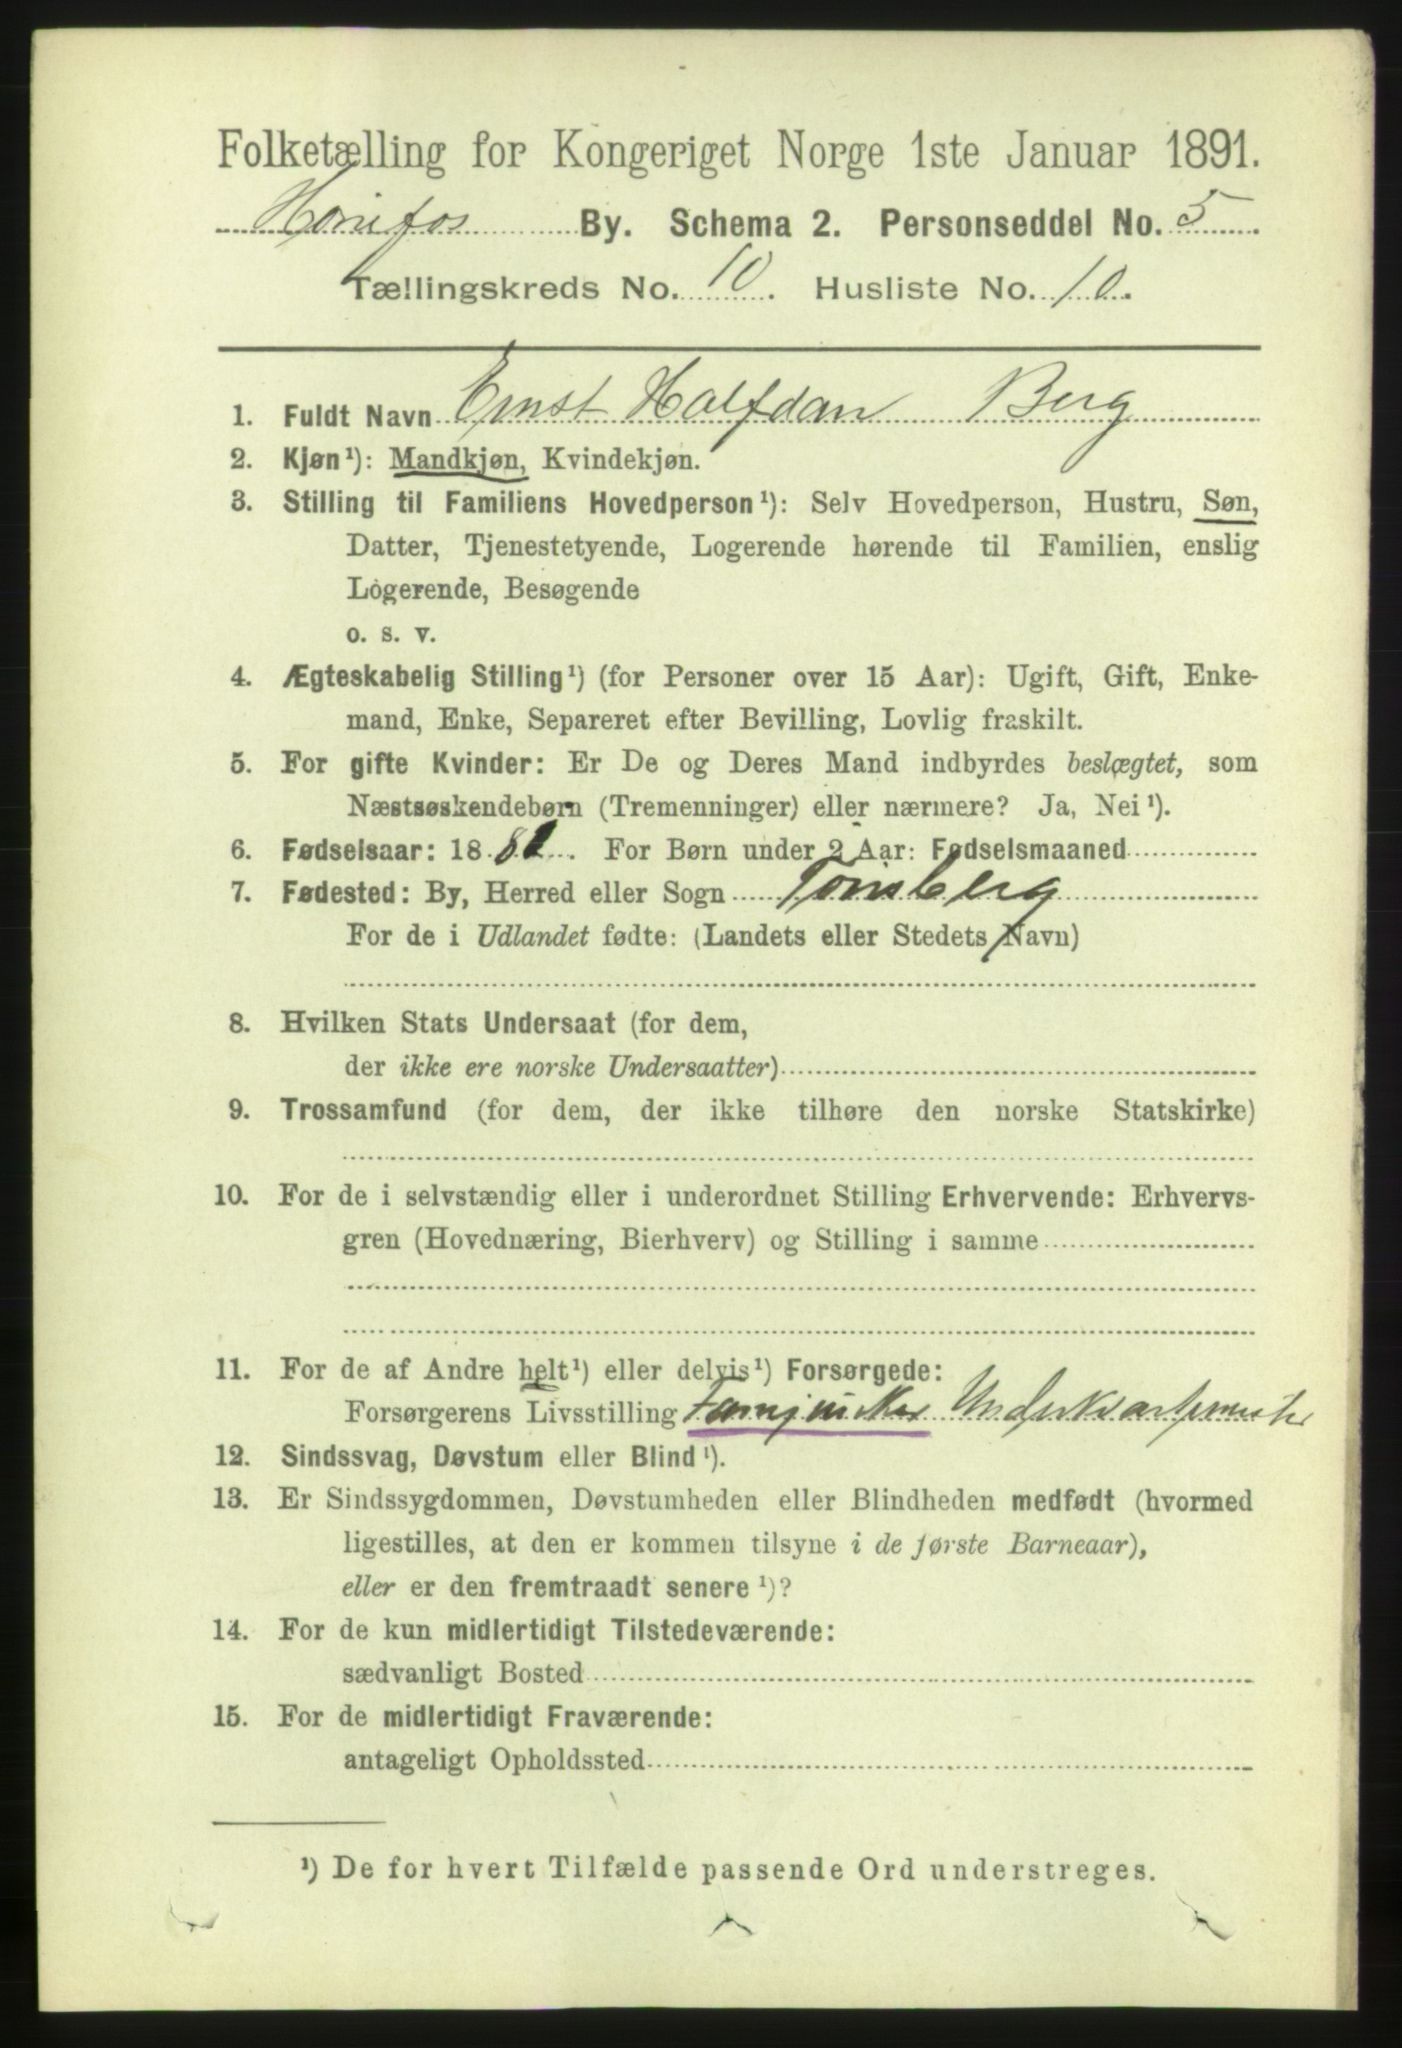 Folketælling for Kongeriget Norge 1ste Januar 1891.
Hønefos By. Schema 2. Personseddel No. 5
Tællingskreds No. 10. Husliste No. 10.
1. Fuldt Navn Ernst Halfdan Berg
2. Kjøn¹): Mandkjøn, Kvindekjøn.
3. Stilling til Familiens Hovedperson¹): Selv Hovedperson, Hustru, Søn,
Datter, Tjenestetyende, Logerende hørende til Familien, enslig
Logerende, Besøgende
o. s. v.
4. Ægteskabelig Stilling¹) (for Personer over 15 Aar): Ugift, Gift, Enke-
mand, Enke, Separeret efter Bevilling, Lovlig fraskilt.
5. For gifte Kvinder: Er De og Deres Mand indbyrdes beslægtet, som
Næstsøskendebørn (Tremenninger) eller nærmere? Ja, Nei¹).
6. Fødselsaar: 188 . For Børn under 2 Aar: Fødselsmaaned
7. Fødested: By, Herred eller Sogn Tønsberg
For de i Udlandet fødte: (Landets eller Stedets Navn)
8. Hvilken Stats Undersaat (for dem,
der ikke ere norske Undersaatter)
9. Trossamfund (for dem, der ikke tilhøre den norske Statskirke)
10. For de i selvstændig eller i underordnet Stilling Erhvervende: Erhvervs-
gren (Hovednæring, Bierhverv) og Stilling i samme
11. For de af Andre helt¹) eller delvis¹) Forsørgede:
Forsørgerens Livsstilling Underkvartermester
12. Sindssvag, Døvstum eller Blind¹).
13. Er Sindssygdommen, Døvstumheden eller Blindheden medfødt (hvormed
ligestilles, at den er kommen tilsyne i de første Barneaar),
eller er den fremtraadt senere¹)?
14. For de kun midlertidigt Tilstedeværende:
sædvanligt Bosted
15. For de midlertidigt Fraværende:
antageligt Opholdssted
¹) De for hvert Tilfælde passende Ord understreges.